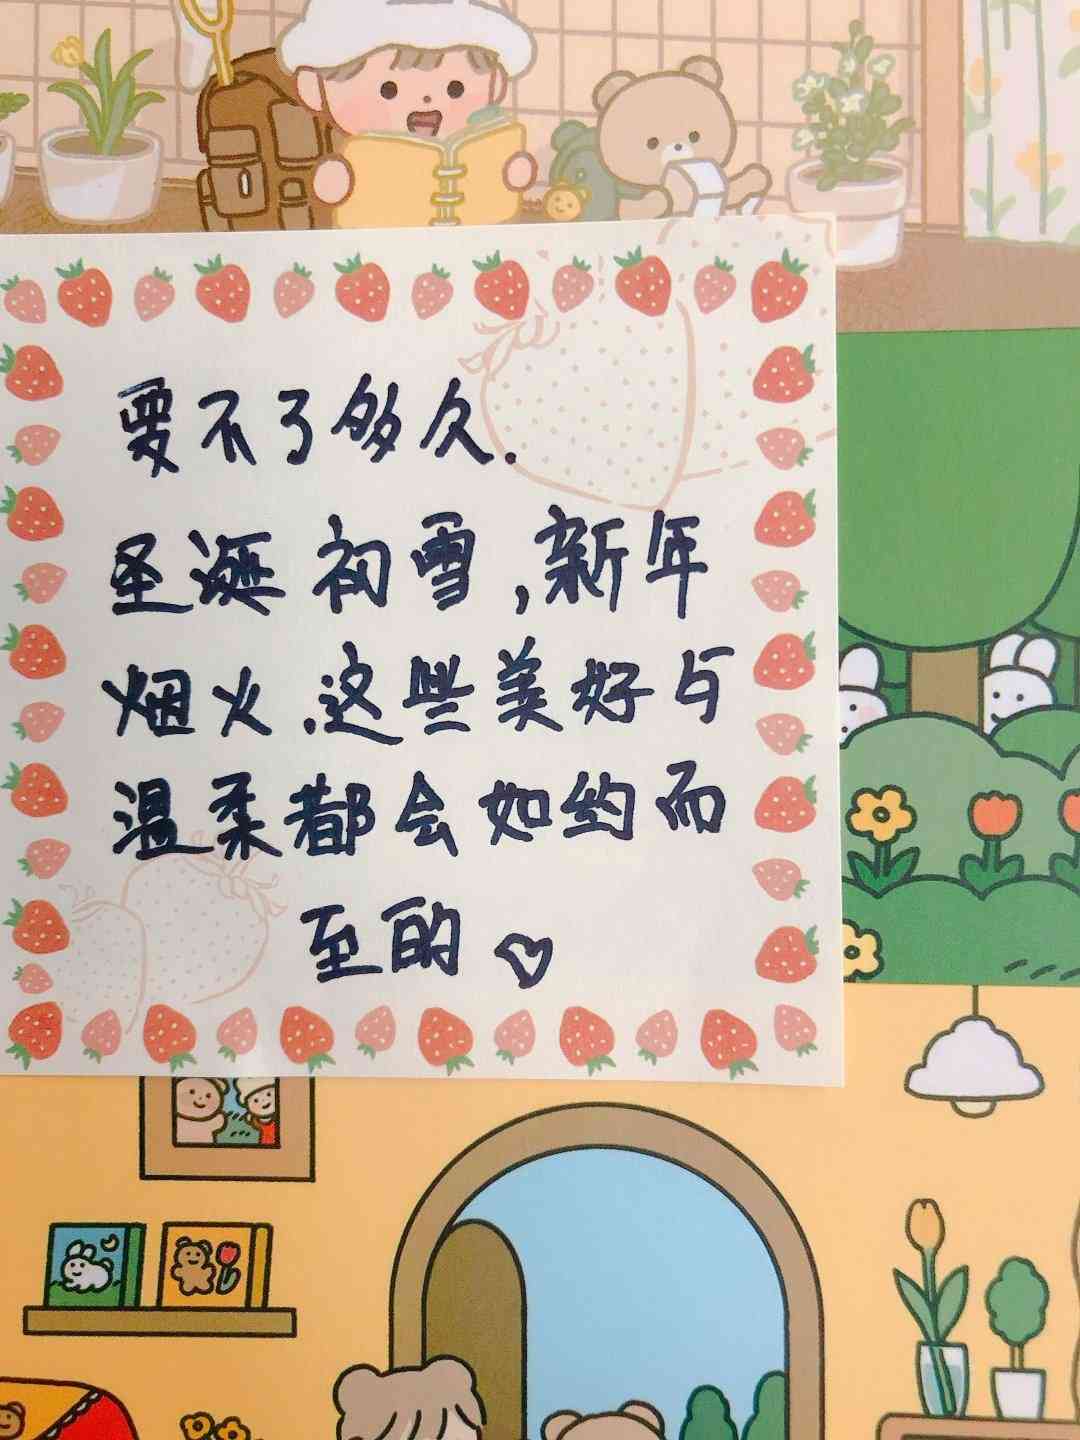 要不了多久.
圣诞初雪,新年
烟火.这些美好与
温柔都会如约而
至的♡